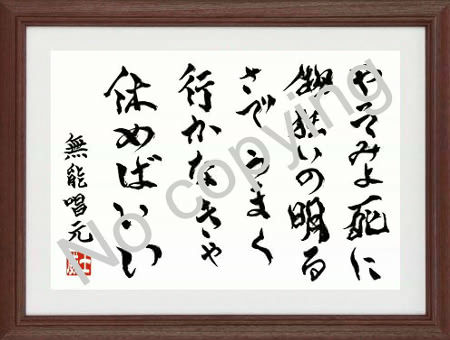 やってみよ死に
物狂いの明る
さで うまく
行かなきゃ
休めばいい
無能唱元
No copying